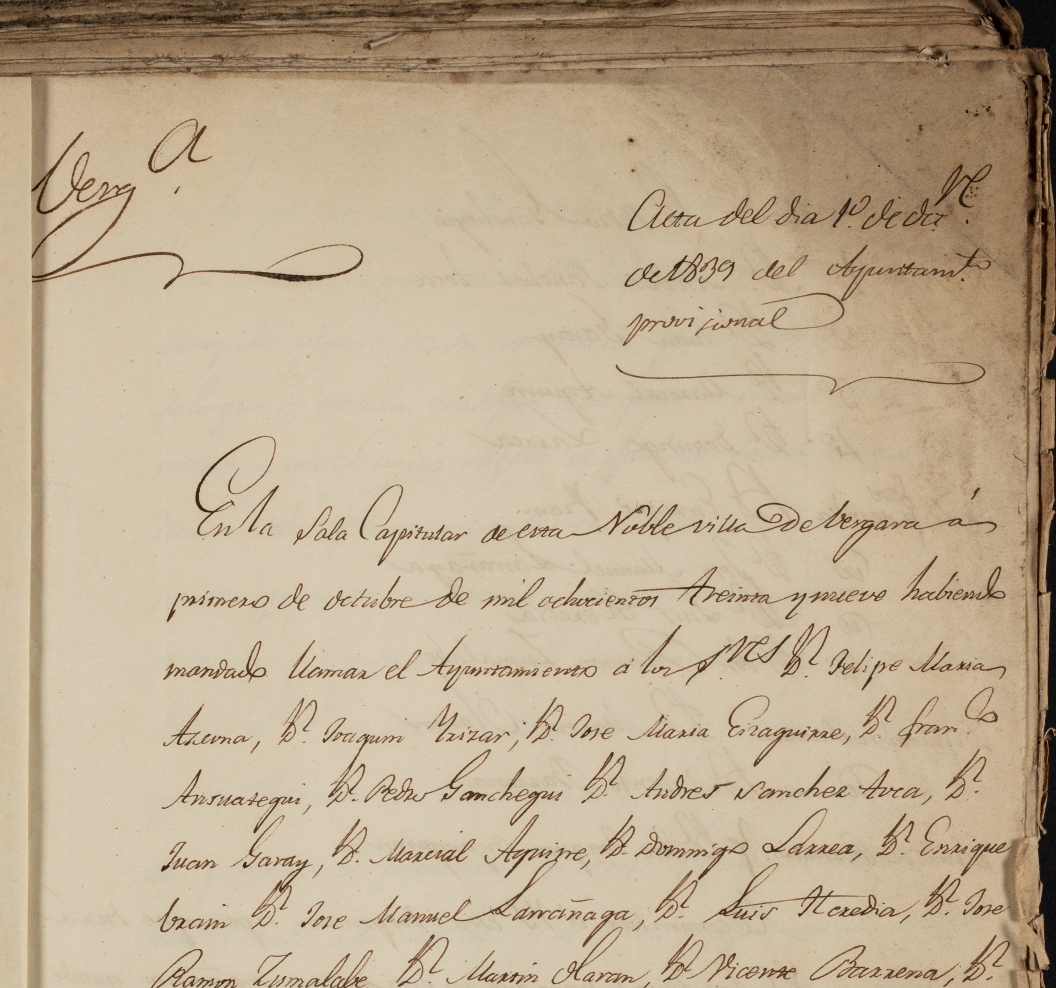 Verg.a
Acta del dia 1º de oct.re
de 1839 del Ayuntam.to
provisional
En la Sala Capitular de esta Noble villa De Vergara á
primero de octubre de mil ochocientos treinta y nueve habiendo
mandado llamar el Ayuntamiento á los S.res D.n Felipe Maria
Azcona, D.n Joaquin Yrizar, D.n Jose Maria Eizaguirre, D.n Fran.co
Ansuategui, D.n Pedro Ganchegui D.n Andres Sanchez Toca, D.n
Juan Garay, D.n Marcial Aguirre, D.n Domingo Larrea, D.n Enrique
Jose Manuel Larrañaga, D.n Luis Heredia, D.n Jose
Ramon Zumalabe D.n Martin Olaran, D.n Vicente Barrena, D.n